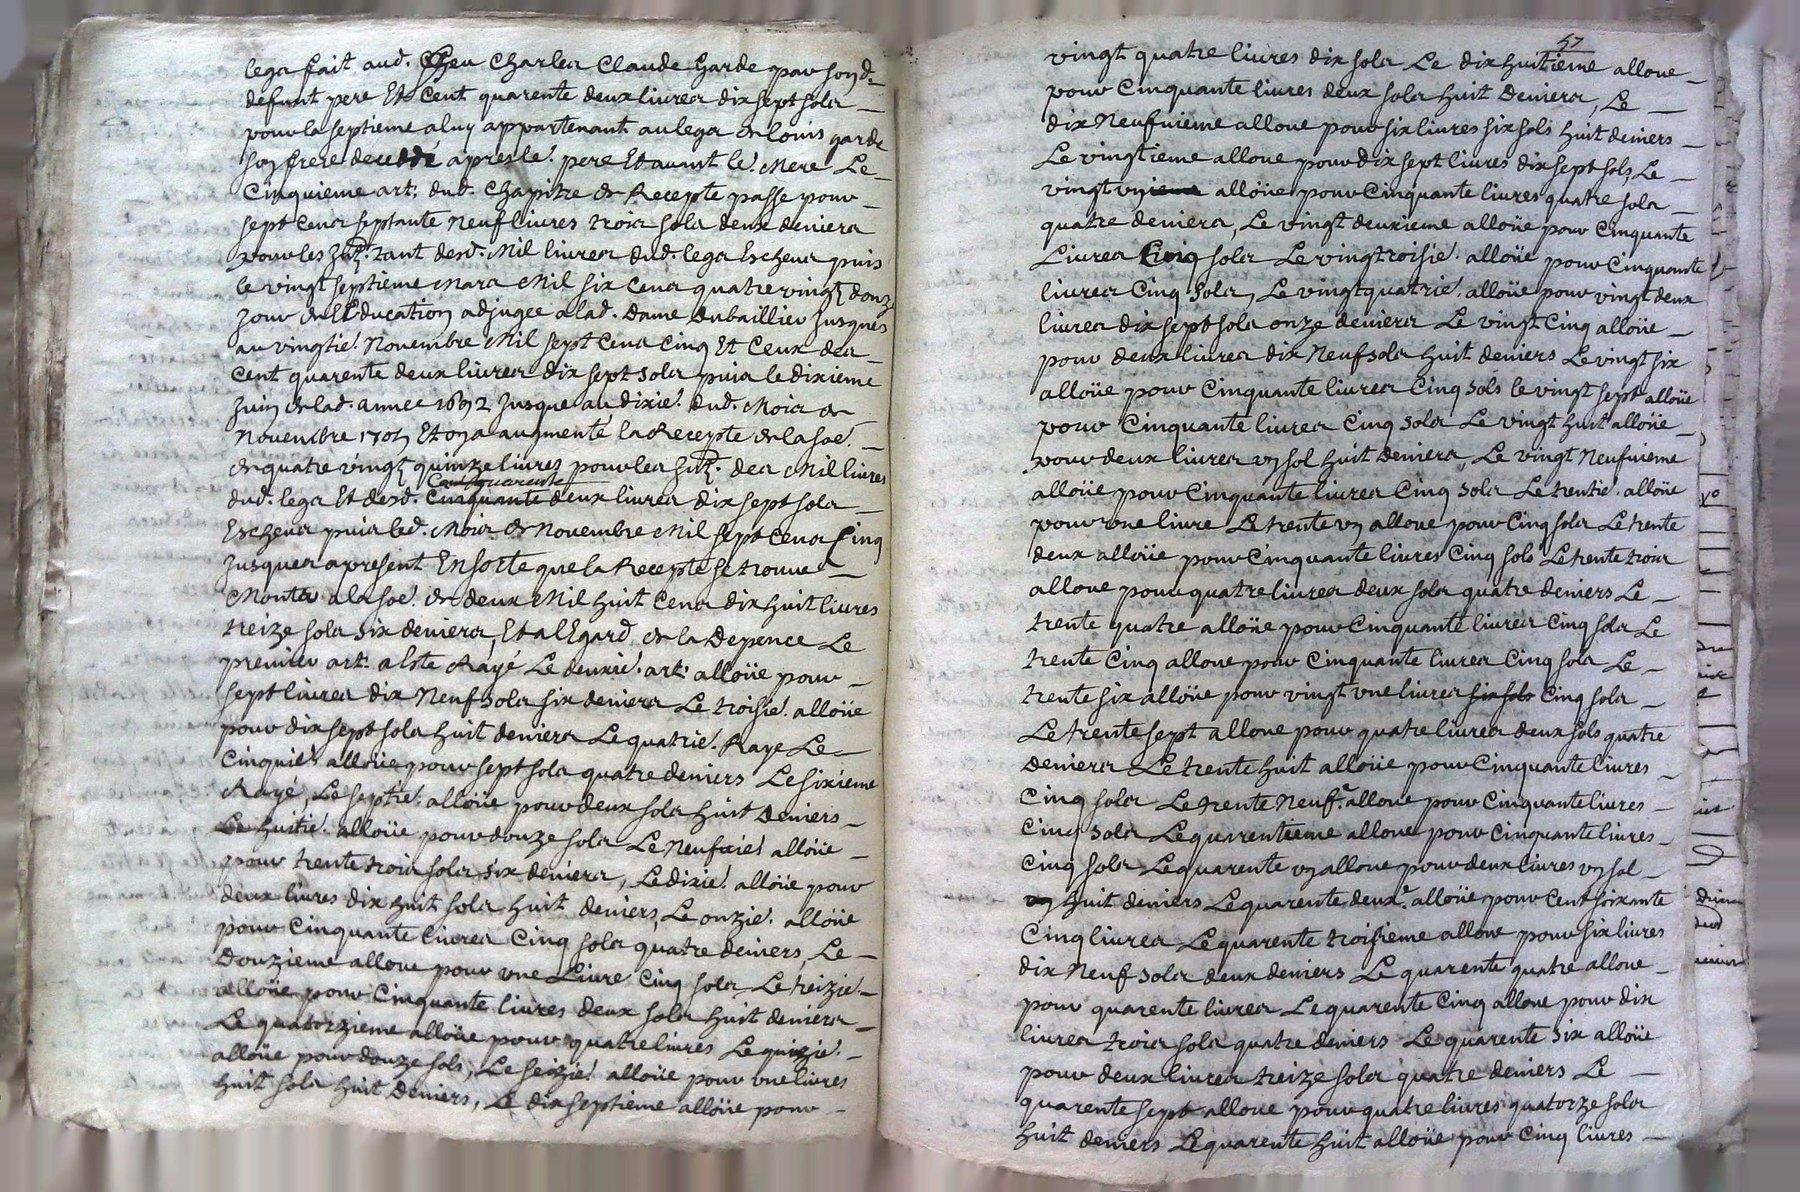 legs fait aud. Charles Claude Garde par sond.
defunt pere Et Cent quarente deux livres dix sept sols
pour la septieme a luy appartenant. au legs de louis garde
son frere decedé apres le. pere Et avant le. Mere Le
Cinquieme art. dud. Chapitre de Recepte passe pour
sept Cens septante Neuf livres trois sols deux deniers
pour les Jnt. tant desd. Mil livres dud. legs Escheus puis
le vingt septieme Mars Mil six Cens quatre vingt douze
jour de L'Education adjugee a lad. Dame Dubaillier jusques
au vingtie. Novembre Mil sept Cens Cinq Et Ceux des
Cent quarente deux livres dix sept sols puis le dixieme
Juin de lad. annee 1692 Jusque au dixie. dud. Mois de
Novembre 1705 Et on a augmenté la Recepte de la soe.
de quatre vingt quinze livres pour les Jnt. des Mil livres
dud. legs Et desd. Cent quarente Cinquante deux livres dix sept sols
Escheus puis led. Mois de Novembre Mil sept Cens Cinq
Jusques a present En sorte que la Recepte se trouve
Monter a la soe. de deux Mil huit Cens dix huit livres
treize sols six deniers, Et a l'Egard de la Depence Le
premier art. a Este Rayé Le deuxie. art. alloüe pour
sept livres dix Neuf sols six deniers Le troisie. alloüe
pour dix sept sols huit deniers Le quatrie. Raye Le
Cinquie. alloüe pour sept sols quatre deniers Le sixieme
Rayé, Le septie. alloüe pour deux sols huit Deniers
Le huitie. alloüe pour douze sols Le Neufvie. alloüe
pour trente trois sols six deniers, Le dixie. alloüe pour
deux livres dix huit sols huit deniers, Le onzie. alloüe
pour Cinquante livres Cinq sols quatre deniers, Le
Douzieme alloue pour vne Livre Cinq sols Le treizie.
alloüe pour Cinquante livres deux sols huit deniers
Le quatorzieme alloüe pour quatre livres Le quinzie.
alloüe pour douze sols, Le seizie. alloüe pour vne livres
huit sols huit Deniers, Le dix septieme alloüe pour
57
vingt quatre livres dix sols Le dix huitieme alloue
pour Cinquante livres deux sols huit Deniers, Le
dix Neufvieme alloue pour six livres six sols huit deniers
Le vingtieme alloue pour dix sept livres dix sept sols, Le
vingt vnieme alloüe pour Cinquante livres quatre sols
quatre deniers, Le vingt deuxieme alloüe pour Cinquante
Livres Cinq sols Le vingtroisie. alloüe pour Cinquante
livres Cinq sols, Le vingtquatrie. alloüe pour vingt deux
livres dix sept sols onze deniers Le vingt Cinq alloüe
pour deux livres dix Neuf sols huit deniers Le vingt six
alloüe pour Cinquante livres Cinq sols le vingt sept alloüe
pour Cinquante livres Cinq sols Le vingt huit alloüe
pour deux livres vn sol huit Deniers, Le vingt Neufvieme
alloüe pour Cinquante livres Cinq sols Le trentie. alloüe
pour vne livre Le trente vn alloue pour Cinq sols Le trente
deux alloüe pour Cinquante livres Cinq sols Le trente trois
alloue pour quatre livres deux sols quatre deniers Le
trente quatre alloüe pour Cinquante livres Cinq sols Le
trente Cinq alloue pour Cinquante livres Cinq sols Le
trente six alloüe pour vingt vne livres six sols Cinq sols
Le trente sept alloue pour quatre livres deux sols quatre
Deniers Le trente huit alloüe pour Cinquante livres
Cinq sols Le trente Neuf.e alloue pour Cinquante livres
Cinq sols Le quarentieme alloue pour Cinquante livres
Cinq sols Le quarente vn alloue pour deux livres vn sol
vn huit deniers Le quarente deux.e alloüe pour Cent soixante
Cinq livres Le quarente troisieme alloue pour six livres
dix Neuf sols deux deniers Le quarente quatre alloue
pour quarente livres Le quarente Cinq alloue pour dix
livres trois sols quatre deniers Le quarente six alloüe
pour deux livres treize sols quatre deniers Le
quarente sept alloue pour quatre livres quatorze sols
huit deniers Le quarente huit alloüe pour Cinq livres